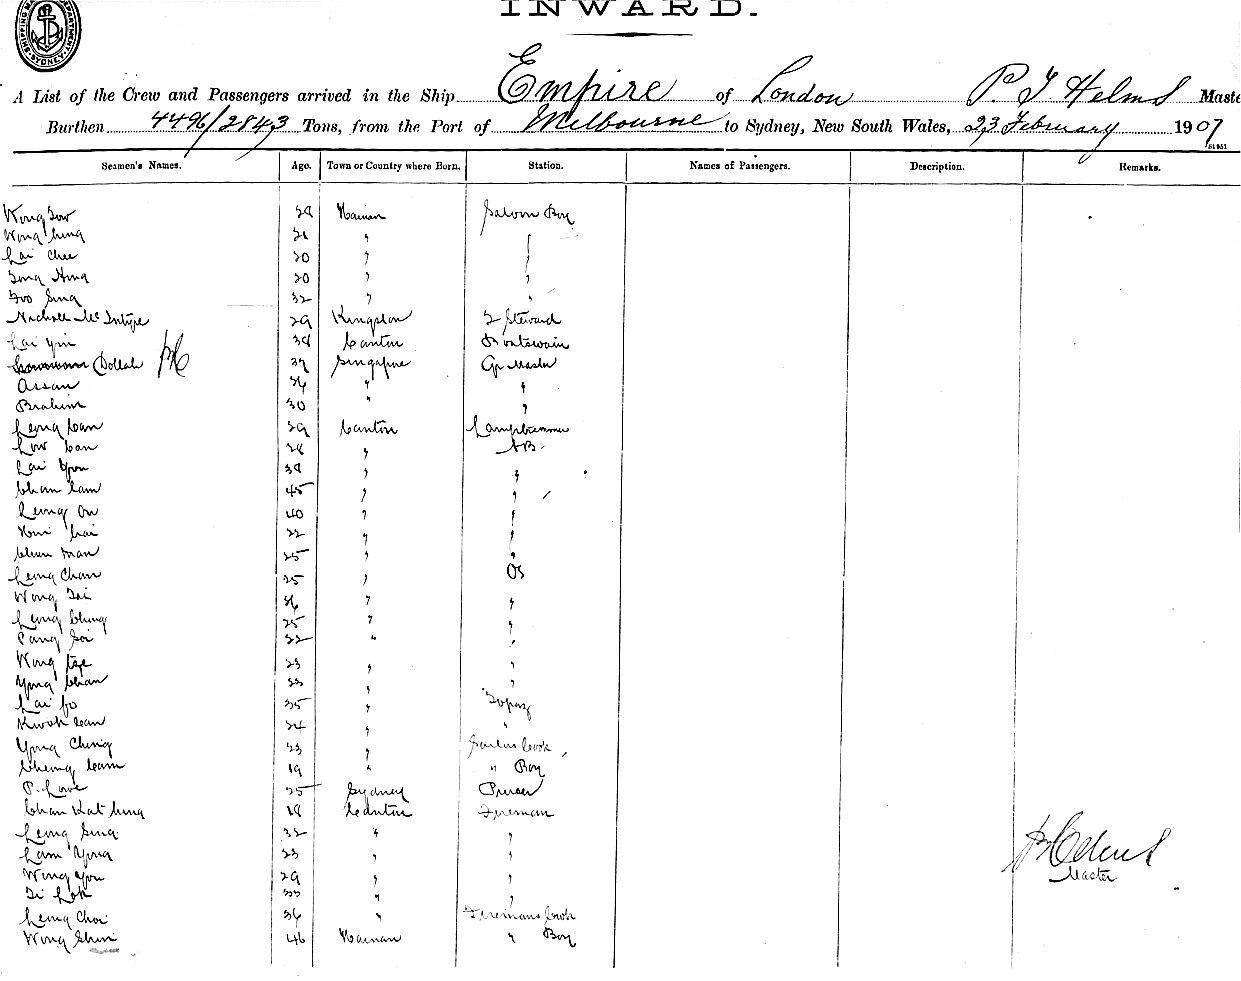 INWARD.
SHIPPING MA DEPARTMENT SYDNEY
A List of the Crew and Passengers arrived in the Ship Empire of London P. T Helms Maste
Burthen 4496/2843 Tons, from the Port of Melbourne to Sydney, New South Wales, 23 February 1907
Seamen's Names. Age. Town or Country where Born. Station. Names of Passengers. Description. Remarks.
Wong Sow 28 Hainan Saloon Boy
Wong " "
Lai Chee 20 " "
Hing 20 " "
Foo Sing 32 " "
McIntyre 29 Kingston 2 Steward
Lai Yin 38 Canton Boatswain
Dollah 37 Singapore Qr Master
Assan 36 " "
Brahim 30 " "
Leong Can 29 Canton Lamptrimmer
Low Can 28 " AB.
Lai You 38 " "
Chan Cam 45 " "
Leong On 40 " "
22 " "
Chan Man 25 " "
Leong Chan 25 " OS
Wong Tai 36 " "
Leong Ching 25 " "
Pang Soi 22 " "
Wong 23 " "
Yong Chan 33 " "
Lai Fo 35 " Topaz
Kwok Can 24 " "
Yong Ching 33 " Sailors Cook
Cheong Cam 19 " " Boy
P. Lowe 25 Sydney Purser
Chan Kat 18 Canton Fireman
Leong Sing 32 " "
Lam Yong 33 " "
Wong You 29 " "
Lok 33 " "
Leong Choi 36 " Firemans Cook
Wong Shin 46 Hainan " Boy
P T Helms
Master